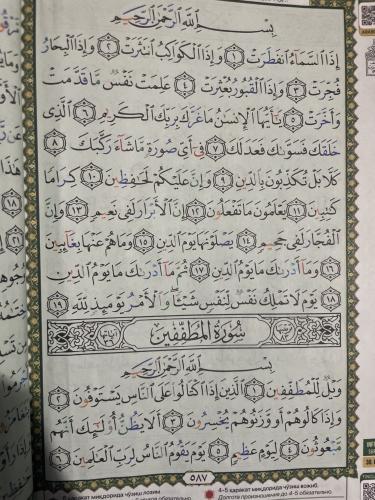 بِسْمِ ٱللَّهِ ٱلرَّحْمَٰنِ ٱلرَّحِيمِ
إِذَا ٱلسَّمَآءُ ٱنفَطَرَتْ ١ وَإِذَا ٱلْكَوَاكِبُ ٱنتَثَرَتْ ٢ وَإِذَا ٱلْبِحَارُ
فُجِّرَتْ ٣ وَإِذَا ٱلْقُبُورُ بُعْثِرَتْ ٤ عَلِمَتْ نَفْسٌ مَّا قَدَّمَتْ
وَأَخَّرَتْ ٥ يَٰٓأَيُّهَا ٱلْإِنسَٰنُ مَا غَرَّكَ بِرَبِّكَ ٱلْكَرِيمِ ٦ ٱلَّذِى
خَلَقَكَ فَسَوَّىٰكَ فَعَدَلَكَ ٧ فِىٓ أَىِّ صُورَةٍ مَّا شَآءَ رَكَّبَكَ ٨
كَلَّا بَلْ تُكَذِّبُونَ بِٱلدِّينِ ٩ وَإِنَّ عَلَيْكُمْ لَحَٰفِظِينَ ١٠ كِرَامًا
كَٰتِبِينَ ١١ يَعْلَمُونَ مَا تَفْعَلُونَ ١٢ إِنَّ ٱلْأَبْرَارَ لَفِى نَعِيمٍ ١٣ وَإِنَّ
ٱلْفُجَّارَ لَفِى جَحِيمٍ ١٤ يَصْلَوْنَهَا يَوْمَ ٱلدِّينِ ١٥ وَمَا هُمْ عَنْهَا بِغَآئِبِينَ
١٦ وَمَآ أَدْرَىٰكَ مَا يَوْمُ ٱلدِّينِ ١٧ ثُمَّ مَآ أَدْرَىٰكَ مَا يَوْمُ ٱلدِّينِ
١٨ يَوْمَ لَا تَمْلِكُ نَفْسٌ لِّنَفْسٍ شَيْـًٔا ۖ وَٱلْأَمْرُ يَوْمَئِذٍ لِّلَّهِ ١٩
سُورَةُ ٱلْمُطَفِّفِينَ
بِسْمِ ٱللَّهِ ٱلرَّحْمَٰنِ ٱلرَّحِيمِ
وَيْلٌ لِّلْمُطَفِّفِينَ ١ ٱلَّذِينَ إِذَا ٱكْتَالُوا۟ عَلَى ٱلنَّاسِ يَسْتَوْفُونَ ٢
وَإِذَا كَالُوهُمْ أَو وَّزَنُوهُمْ يُخْسِرُونَ ٣ أَلَا يَظُنُّ أُو۟لَٰٓئِكَ أَنَّهُم
مَّبْعُوثُونَ ٤ لِيَوْمٍ عَظِيمٍ ٥ يَوْمَ يَقُومُ ٱلنَّاسُ لِرَبِّ ٱلْعَٰلَمِينَ ٦
٥٨٧
ҳаракат миқдорида чўзиш лозим
4-5 ҳаракат миқдорида чўзиш вожиб.
Долгота произношения до 4-5 обязательно.